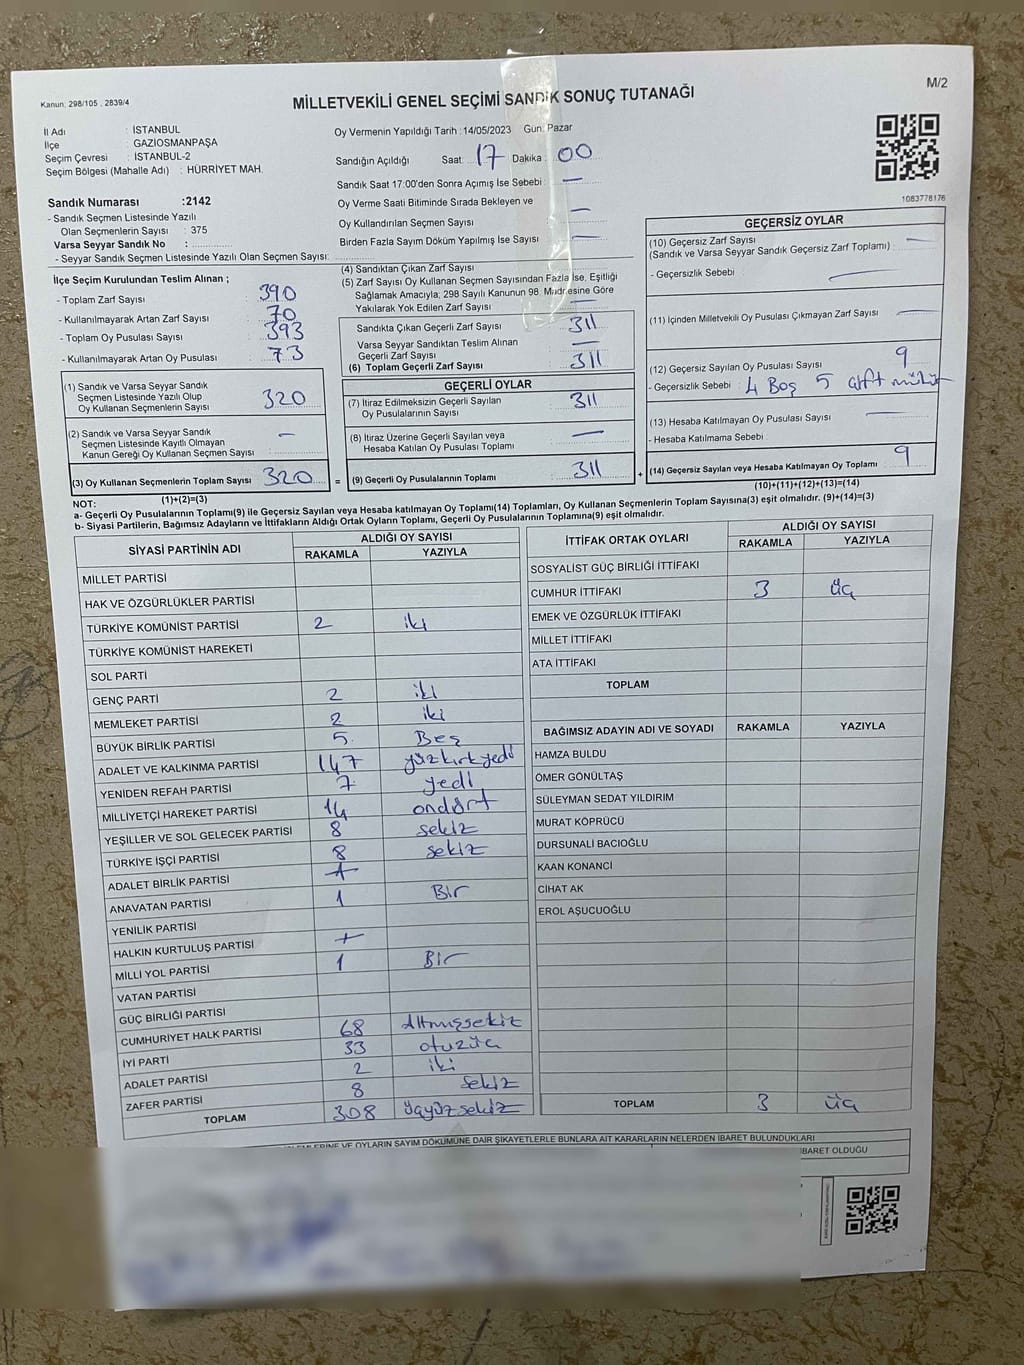 Kanun: 298/105 , 2839/4
MİLLETVEKİLİ GENEL SEÇİMİ SANDIK SONUÇ TUTANAĞI
M/2
İl Adı : İSTANBUL
İlçe : GAZİOSMANPAŞA
Seçim Çevresi : İSTANBUL-2
Seçim Bölgesi (Mahalle Adı) : HÜRRİYET MAH.
Sandık Numarası :2142
- Sandık Seçmen Listesinde Yazılı
Olan Seçmenlerin Sayısı : 375
Varsa Seyyar Sandık No :
- Seyyar Sandık Seçmen Listesinde Yazılı Olan Seçmen Sayısı:
Oy Vermenin Yapıldığı Tarih :14/05/2023 Gün: Pazar
Sandığın Açıldığı Saat: 17 Dakika : 00
Sandık Saat 17:00'den Sonra Açımış İse Sebebi : —
Oy Verme Saati Bitiminde Sırada Bekleyen ve
Oy Kullandırılan Seçmen Sayısı —
Birden Fazla Sayım Döküm Yapılmış İse Sayısı —
1083778176
İlçe Seçim Kurulundan Teslim Alınan ;
- Toplam Zarf Sayısı : 390
- Kullanılmayarak Artan Zarf Sayısı : 70
- Toplam Oy Pusulası Sayısı : 393
- Kullanılmayarak Artan Oy Pusulası : 73
(1) Sandık ve Varsa Seyyar Sandık
Seçmen Listesinde Yazılı Olup
Oy Kullanan Seçmenlerin Sayısı : 320
(2) Sandık ve Varsa Seyyar Sandık
Seçmen Listesinde Kayıtlı Olmayan
Kanun Gereği Oy Kullanan Seçmen Sayısı : —
(3) Oy Kullanan Seçmenlerin Toplam Sayısı : 320
(1)+(2)=(3)
(4) Sandıktan Çıkan Zarf Sayısı
(5) Zarf Sayısı Oy Kullanan Seçmen Sayısından Fazla İse, Eşitliği
Sağlamak Amacıyla, 298 Sayılı Kanunun 98. Maddesine Göre
Yakılarak Yok Edilen Zarf Sayısı : —
Sandıkta Çıkan Geçerli Zarf Sayısı : 311
Varsa Seyyar Sandıktan Teslim Alınan
Geçerli Zarf Sayısı : —
(6) Toplam Geçerli Zarf Sayısı : 311
GEÇERLİ OYLAR
(7) İtiraz Edilmeksizin Geçerli Sayılan
Oy Pusulalarının Sayısı : 311
(8) İtiraz Üzerine Geçerli Sayılan veya
Hesaba Katılan Oy Pusulası Toplamı : —
= (9) Geçerli Oy Pusulalarının Toplamı : 311
GEÇERSİZ OYLAR
(10) Geçersiz Zarf Sayısı : —
(Sandık ve Varsa Seyyar Sandık Geçersiz Zarf Toplamı)
- Geçersizlik Sebebi : —
(11) İçinden Milletvekili Oy Pusulası Çıkmayan Zarf Sayısı : —
(12) Geçersiz Sayılan Oy Pusulası Sayısı : 9
- Geçersizlik Sebebi : 4 Boş 5 çift mühür
(13) Hesaba Katılmayan Oy Pusulası Sayısı : —
- Hesaba Katılmama Sebebi :
+ (14) Geçersiz Sayılan veya Hesaba Katılmayan Oy Toplamı : 9
(10)+(11)+(12)+(13)=(14)
NOT:
a- Geçerli Oy Pusulalarının Toplamı(9) ile Geçersiz Sayılan veya Hesaba katılmayan Oy Toplamı(14) Toplamları, Oy Kullanan Seçmenlerin Toplam Sayısına(3) eşit olmalıdır. (9)+(14)=(3)
b- Siyasi Partilerin, Bağımsız Adayların ve İttifakların Aldığı Ortak Oyların Toplamı, Geçerli Oy Pusulalarının Toplamına(9) eşit olmalıdır.
SİYASİ PARTİNİN ADI ALDIĞI OY SAYISI
RAKAMLA YAZIYLA
MİLLET PARTİSİ
HAK VE ÖZGÜRLÜKLER PARTİSİ
TÜRKİYE KOMÜNİST PARTİSİ 2 iki
TÜRKİYE KOMÜNİST HAREKETİ
SOL PARTİ
GENÇ PARTİ 2 iki
MEMLEKET PARTİSİ 2 iki
BÜYÜK BİRLİK PARTİSİ 5 Beş
ADALET VE KALKINMA PARTİSİ 147 yüzkırkyedi
YENİDEN REFAH PARTİSİ 7 yedi
MİLLİYETÇİ HAREKET PARTİSİ 14 ondört
YEŞİLLER VE SOL GELECEK PARTİSİ 8 sekiz
TÜRKİYE İŞÇİ PARTİSİ 8 sekiz
ADALET BİRLİK PARTİSİ
ANAVATAN PARTİSİ 1 Bir
YENİLİK PARTİSİ
HALKIN KURTULUŞ PARTİSİ
MİLLİ YOL PARTİSİ 1 Bir
VATAN PARTİSİ
GÜÇ BİRLİĞİ PARTİSİ
CUMHURİYET HALK PARTİSİ 68 Altmışsekiz
İYİ PARTİ 33 otuzüç
ADALET PARTİSİ 2 iki
ZAFER PARTİSİ 8 sekiz
TOPLAM 308 üçyüzsekiz
İTTİFAK ORTAK OYLARI ALDIĞI OY SAYISI
RAKAMLA YAZIYLA
SOSYALİST GÜÇ BİRLİĞİ İTTİFAKI
CUMHUR İTTİFAKI 3 üç
EMEK VE ÖZGÜRLÜK İTTİFAKI
MİLLET İTTİFAKI
ATA İTTİFAKI
TOPLAM
BAĞIMSIZ ADAYIN ADI VE SOYADI RAKAMLA YAZIYLA
HAMZA BULDU
ÖMER GÖNÜLTAŞ
SÜLEYMAN SEDAT YILDIRIM
MURAT KÖPRÜCÜ
DURSUNALİ BACIOĞLU
KAAN KONANCİ
CİHAT AK
EROL AŞUCUOĞLU
TOPLAM 3 üç
VE OYLARIN SAYIM DÖKÜMÜNE DAİR ŞİKAYETLERLE BUNLARA AİT KARARLARIN NELERDEN İBARET BULUNDUKLARI
İBARET OLDUĞU